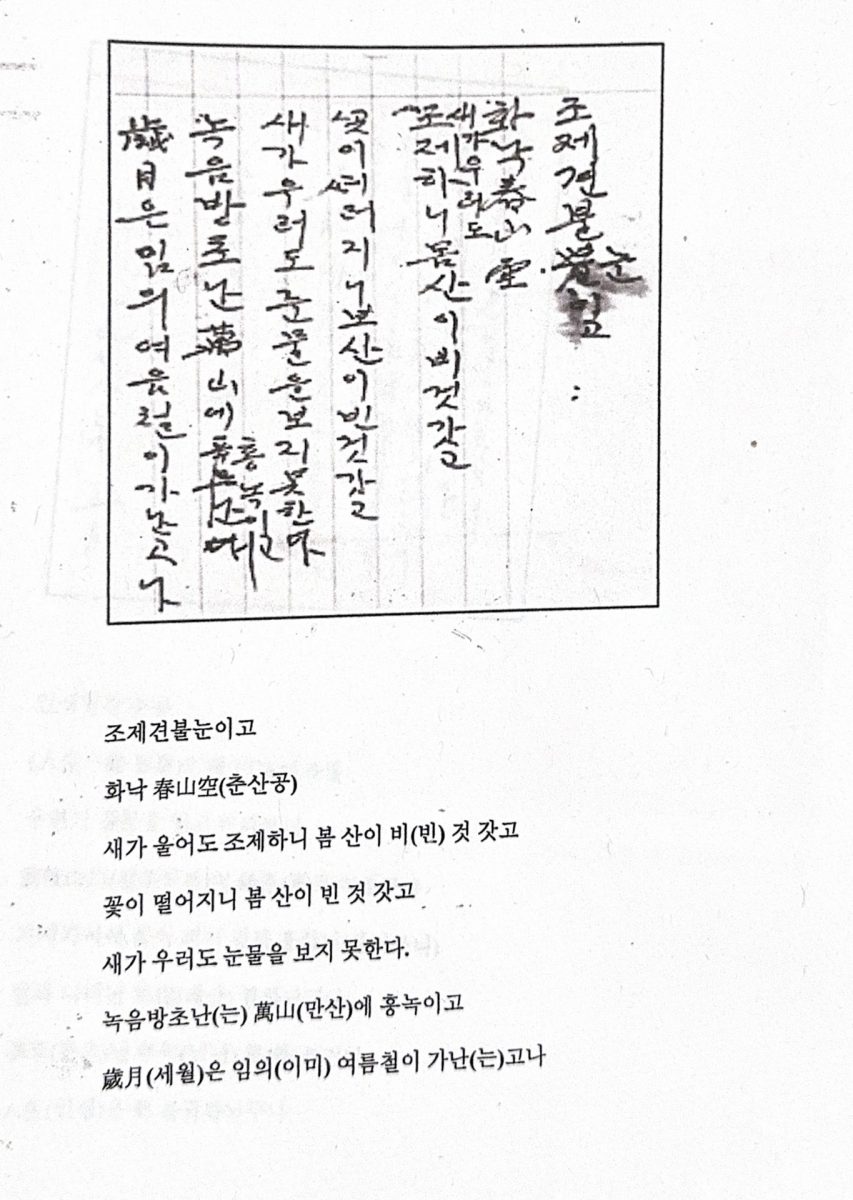 조제견불눈이고
화낙春山空
새가우러도
조제하니봄산이비것갓고
꽃이떠러지니보산이빈것갓고
새가우러도눈물을보지못한다
녹음방초난萬山에홍녹이고
歲月은임의여음철이가난고나
조제견불눈이고
화낙 春山空(춘산공)
새가 울어도 조제하니 봄 산이 비(빈) 것 갓고
꽃이 떨어지니 봄 산이 빈 것 갓고
새가 우러도 눈물을 보지 못한다.
녹음방초난(는) 萬山(만산)에 홍녹이고
歲月(세월)은 임의(이미) 여름철이 가난(는)고나